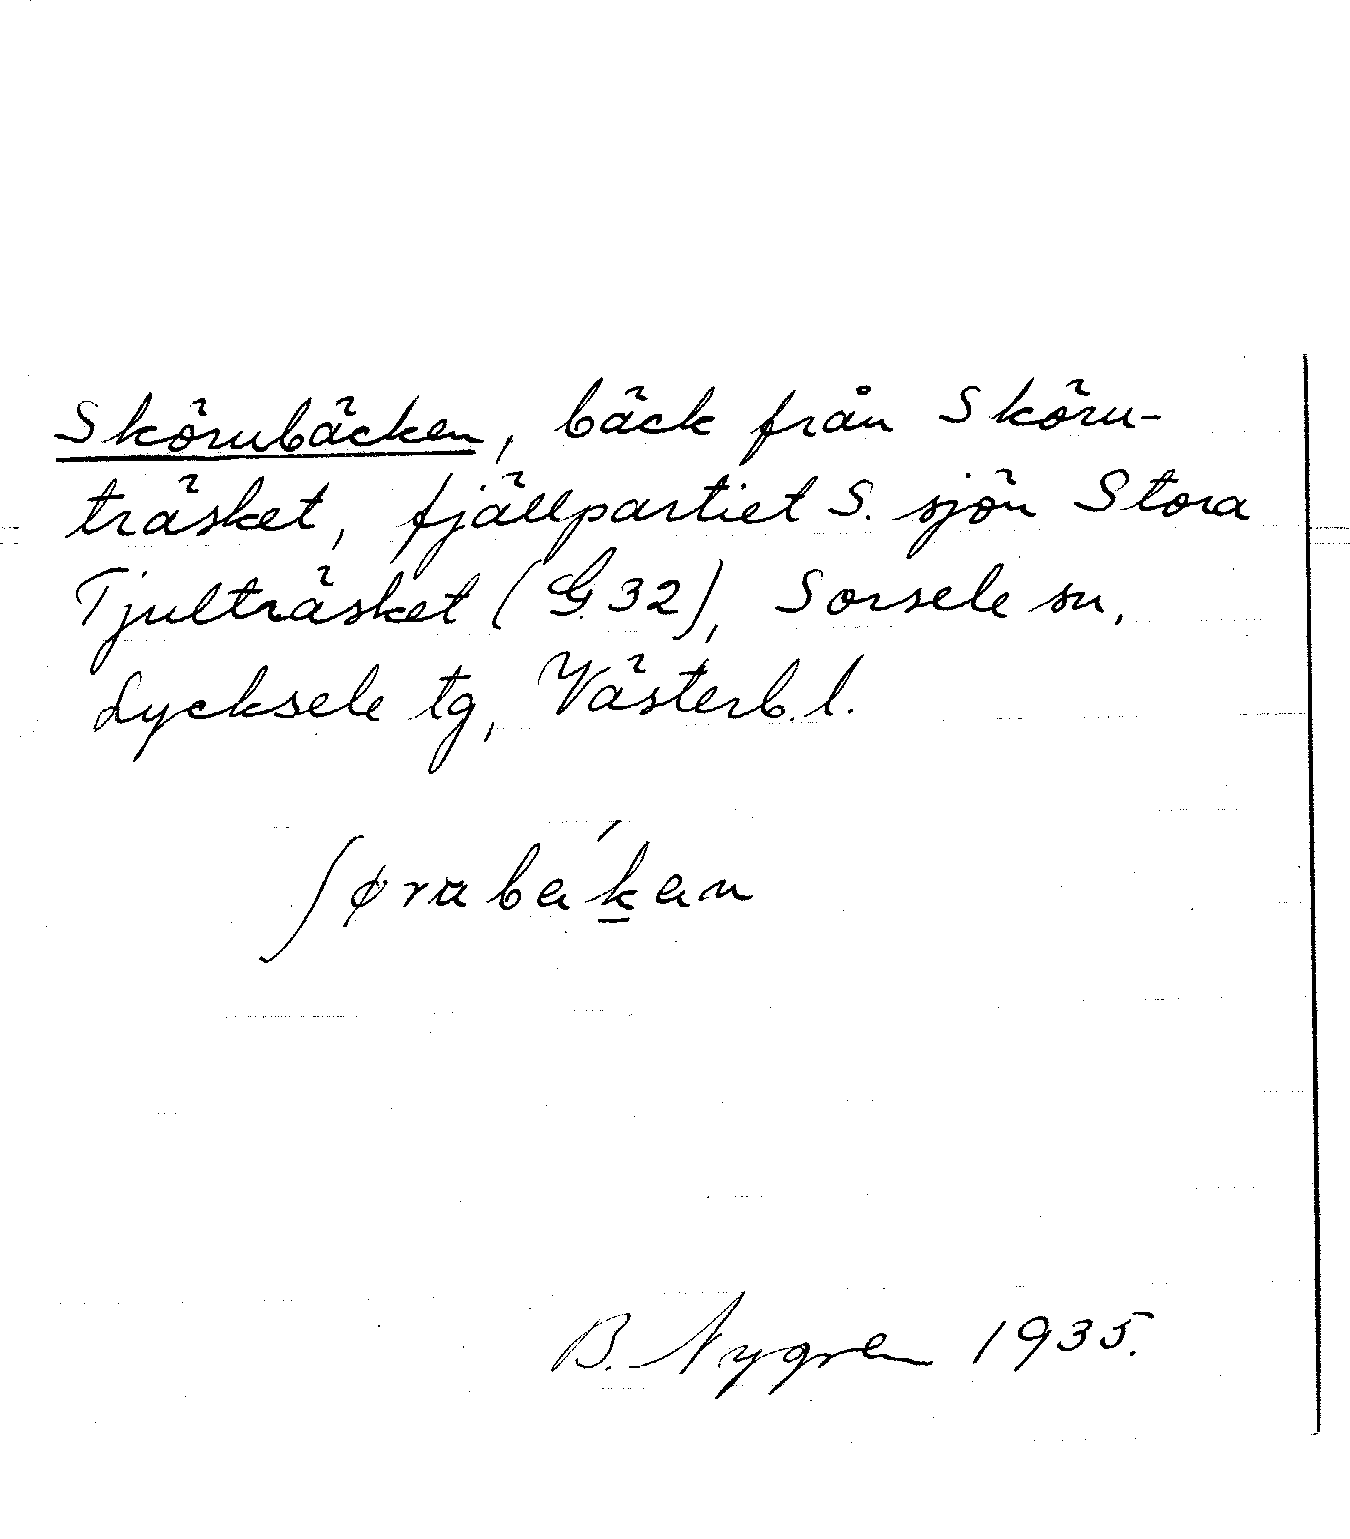 Skörubäcken, bäck från Sköru-
träsket, fjällpartiet S. sjön Stora
Tjulträsket (G.32), Sorsele sn,
Lycksele tg, Västerb. l.
ʃørabe´ḵen
B. Nygren 1935.